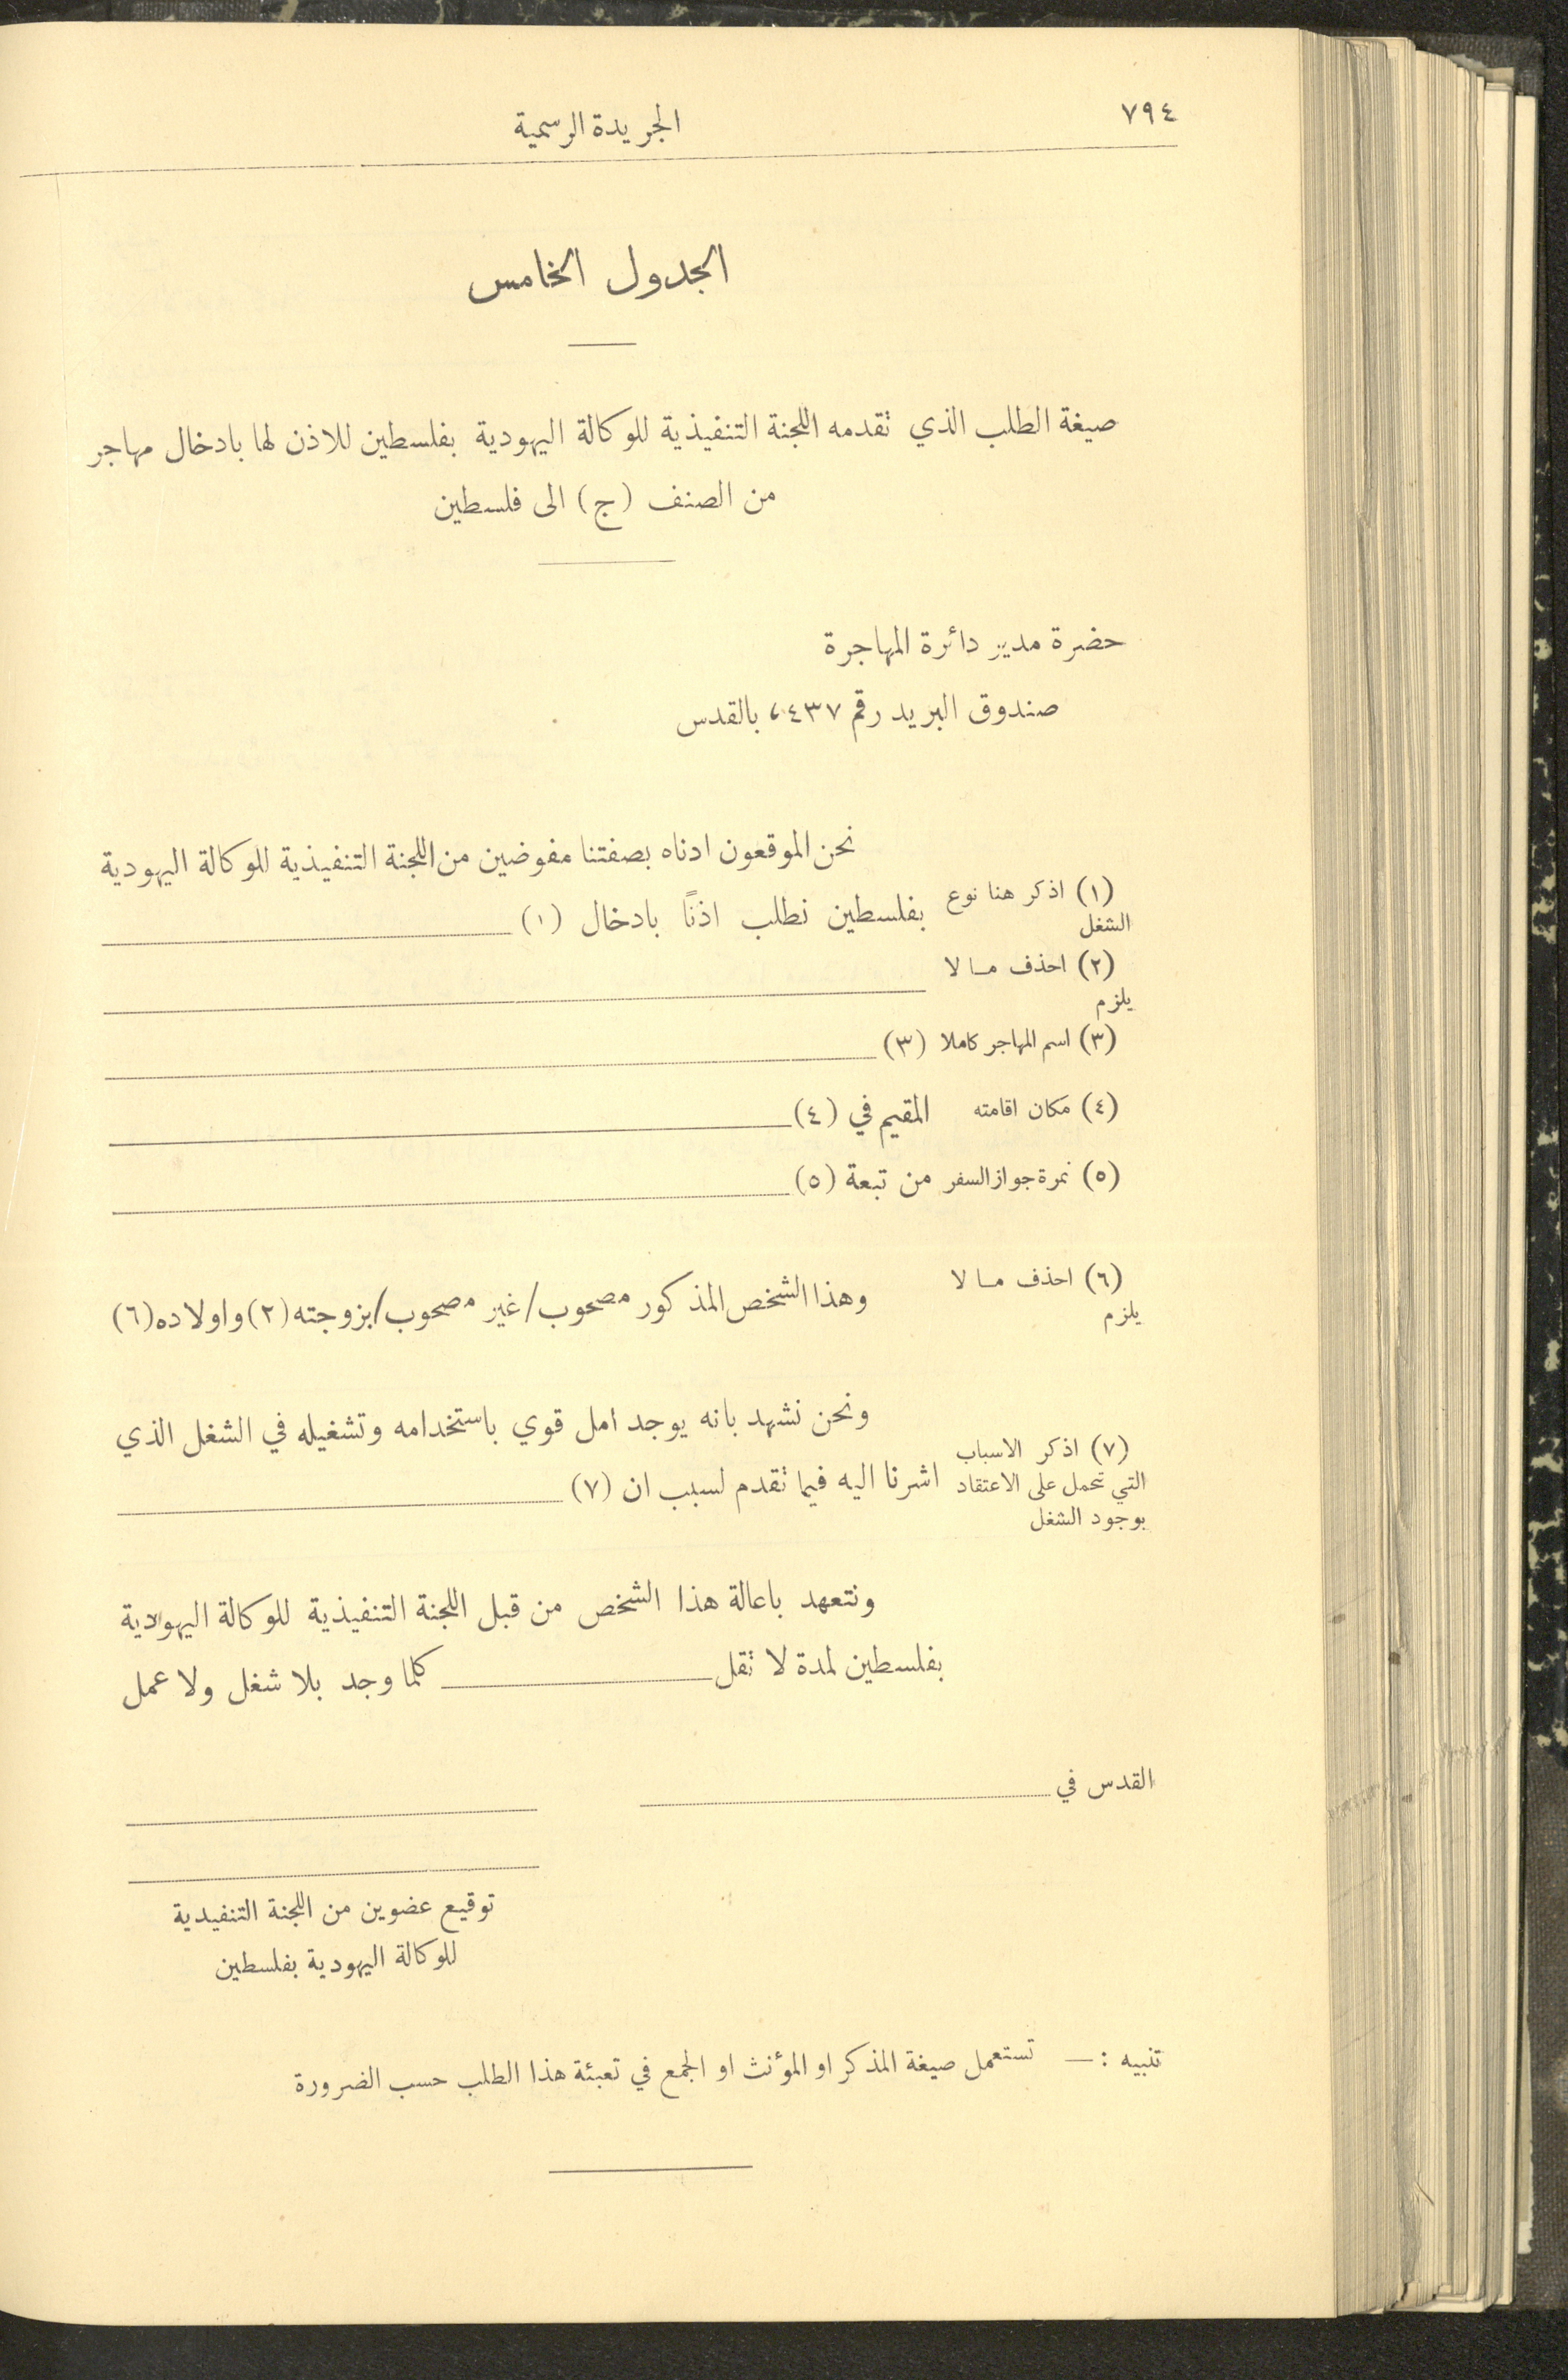 ٧٩٤
الجريدة الرسمية
الجدول الخامس
صيغة الطلب الذي تقدمه اللجنة التنفيذية للوكالة اليهودية بفلسطين للاذن لها بادخال مهاجر
من الصنف (ج) الى فلسطين
حضرة مدير دائرة المهاجرة
صندوق البريد رقم ٤٣٧، بالقدس
نحن الموقعون ادناه بصفتنا مفوضين من اللجنة التنفيذية للوكالة اليهودية
(١) اذكر هنا نوع
الشغل
بفلسطين نطلب اذنًا بادخال (١)
(٢) احذف مـا لا
يلزم
(٣) اسم المهاجر كاملا
(٣)
(٤) مكان اقامته
المقيم في (٤)
(٥) نمرة جواز السفر
من تبعة (٥)
(٦) احذف مـا لا
يلزم
وهذا الشخص المذكور مصحوب/غير مصحوب/بزوجته (٢) واولاده (٦)
ونحن نشهد بانه يوجد امل قوي باستخدامه وتشغيله في الشغل الذي
(٧) اذكر الاسباب
التي تحمل على الاعتقاد
بوجود الشغل
اشرنا اليه فيما تقدم لسبب ان (٧)
ونتعهد باعالة هذا الشخص من قبل اللجنة التنفيذية للوكالة اليهودية
بفلسطين لمدة لا تقل كلما وجد بلا شغل ولا عمل
القدس في
توقيع عضوين من اللجنة التنفيدية
للوكالة اليهودية بفلسطين
تنبيه : — تستعمل صيغة المذكر او المؤنث او الجمع في تعبئة هذا الطلب حسب الضرورة